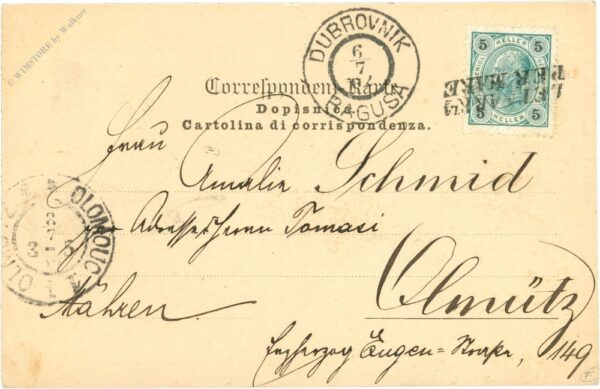 © WIMSTORE by Walkner
DUBROVNIK
6
7
RAGUSA
5 HELLER 5
5 HELLER 5
LETT. ARR.
PER MARE
Correspondenz-Karte
Dopisnica
Cartolina di corrispondenza.
Frau
Amalie Schmid
per Adresse Herrn Tomasi
Olmütz
OLOMOUC
OLMÜTZ
Mähren
Erzherzog Eugen=Straße, 149